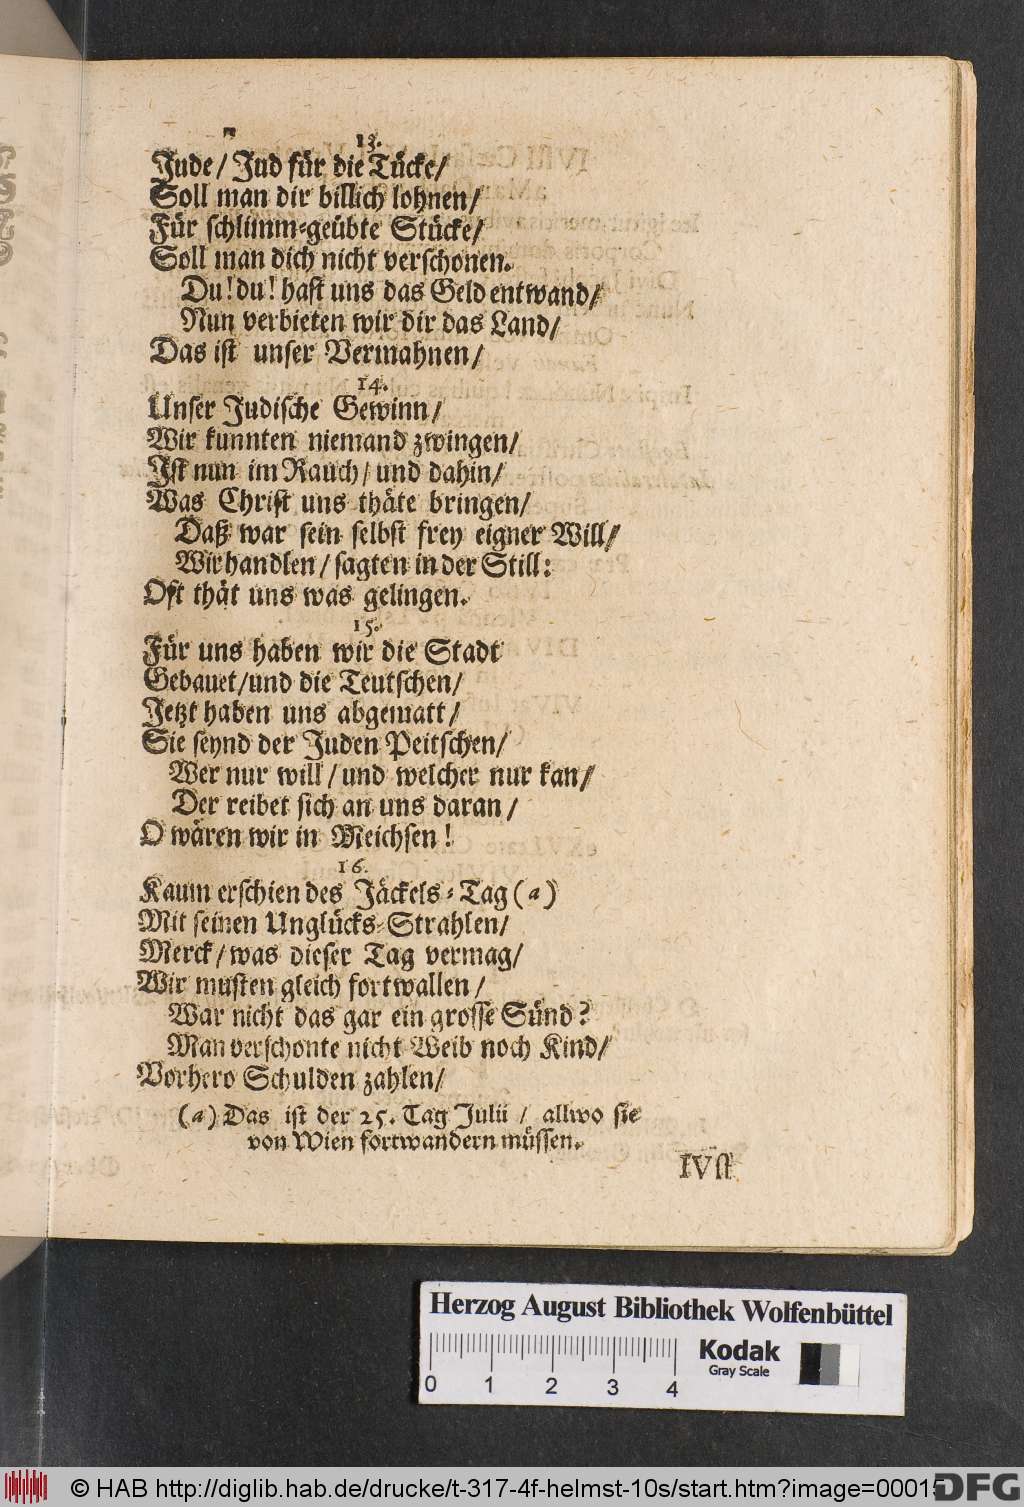 13.
Jude/ Jud für die Tücke/
Soll man dir billich lohnen/
Für schlimm-geübte Stücke/
Soll man dich nicht verschonen.
Du! du! hast uns das Geld entwand/
Nun verbieten wir dir das Land/
Das ist unser Vermahnen/
14.
Unser Judische Gewinn/
Wir kunnten niemand zwingen/
Ist nun im Rauch/ und dahin/
Was Christ uns thäte bringen/
Daß war sein selbst frey eigner Will/
Wir handlen/ sagten in der Still:
Oft thät uns was gelingen.
15.
Für uns haben wir die Stadt
Gebauet/und die Teutschen/
Jetzt haben uns abgematt/
Sie seynd der Juden Peitschen/
Wer nur will/ und welcher nur kan/
Der reibet sich an uns daran/
O wären wir in Reichsen!
16.
Kaum erschien des Jäckels-Tag (a)
Mit seinen Unglücks-Strahlen/
Merck/ was dieser Tag vermag/
Wir musten gleich fortwallen/
War nicht das gar ein grosse Sünd?
Man verschonte nicht Weib noch Kind/
Vorhero Schulden zahlen/
(a) Das ist der 25. Tag Julii/ allwo sie
von Wien fortwandern müssen.
IVst
Herzog August Bibliothek Wolfenbüttel
Kodak
Gray Scale
0 1 2 3 4
© HAB http://diglib.hab.de/drucke/t-317-4f-helmst-10s/start.htm?image=00015
DFG